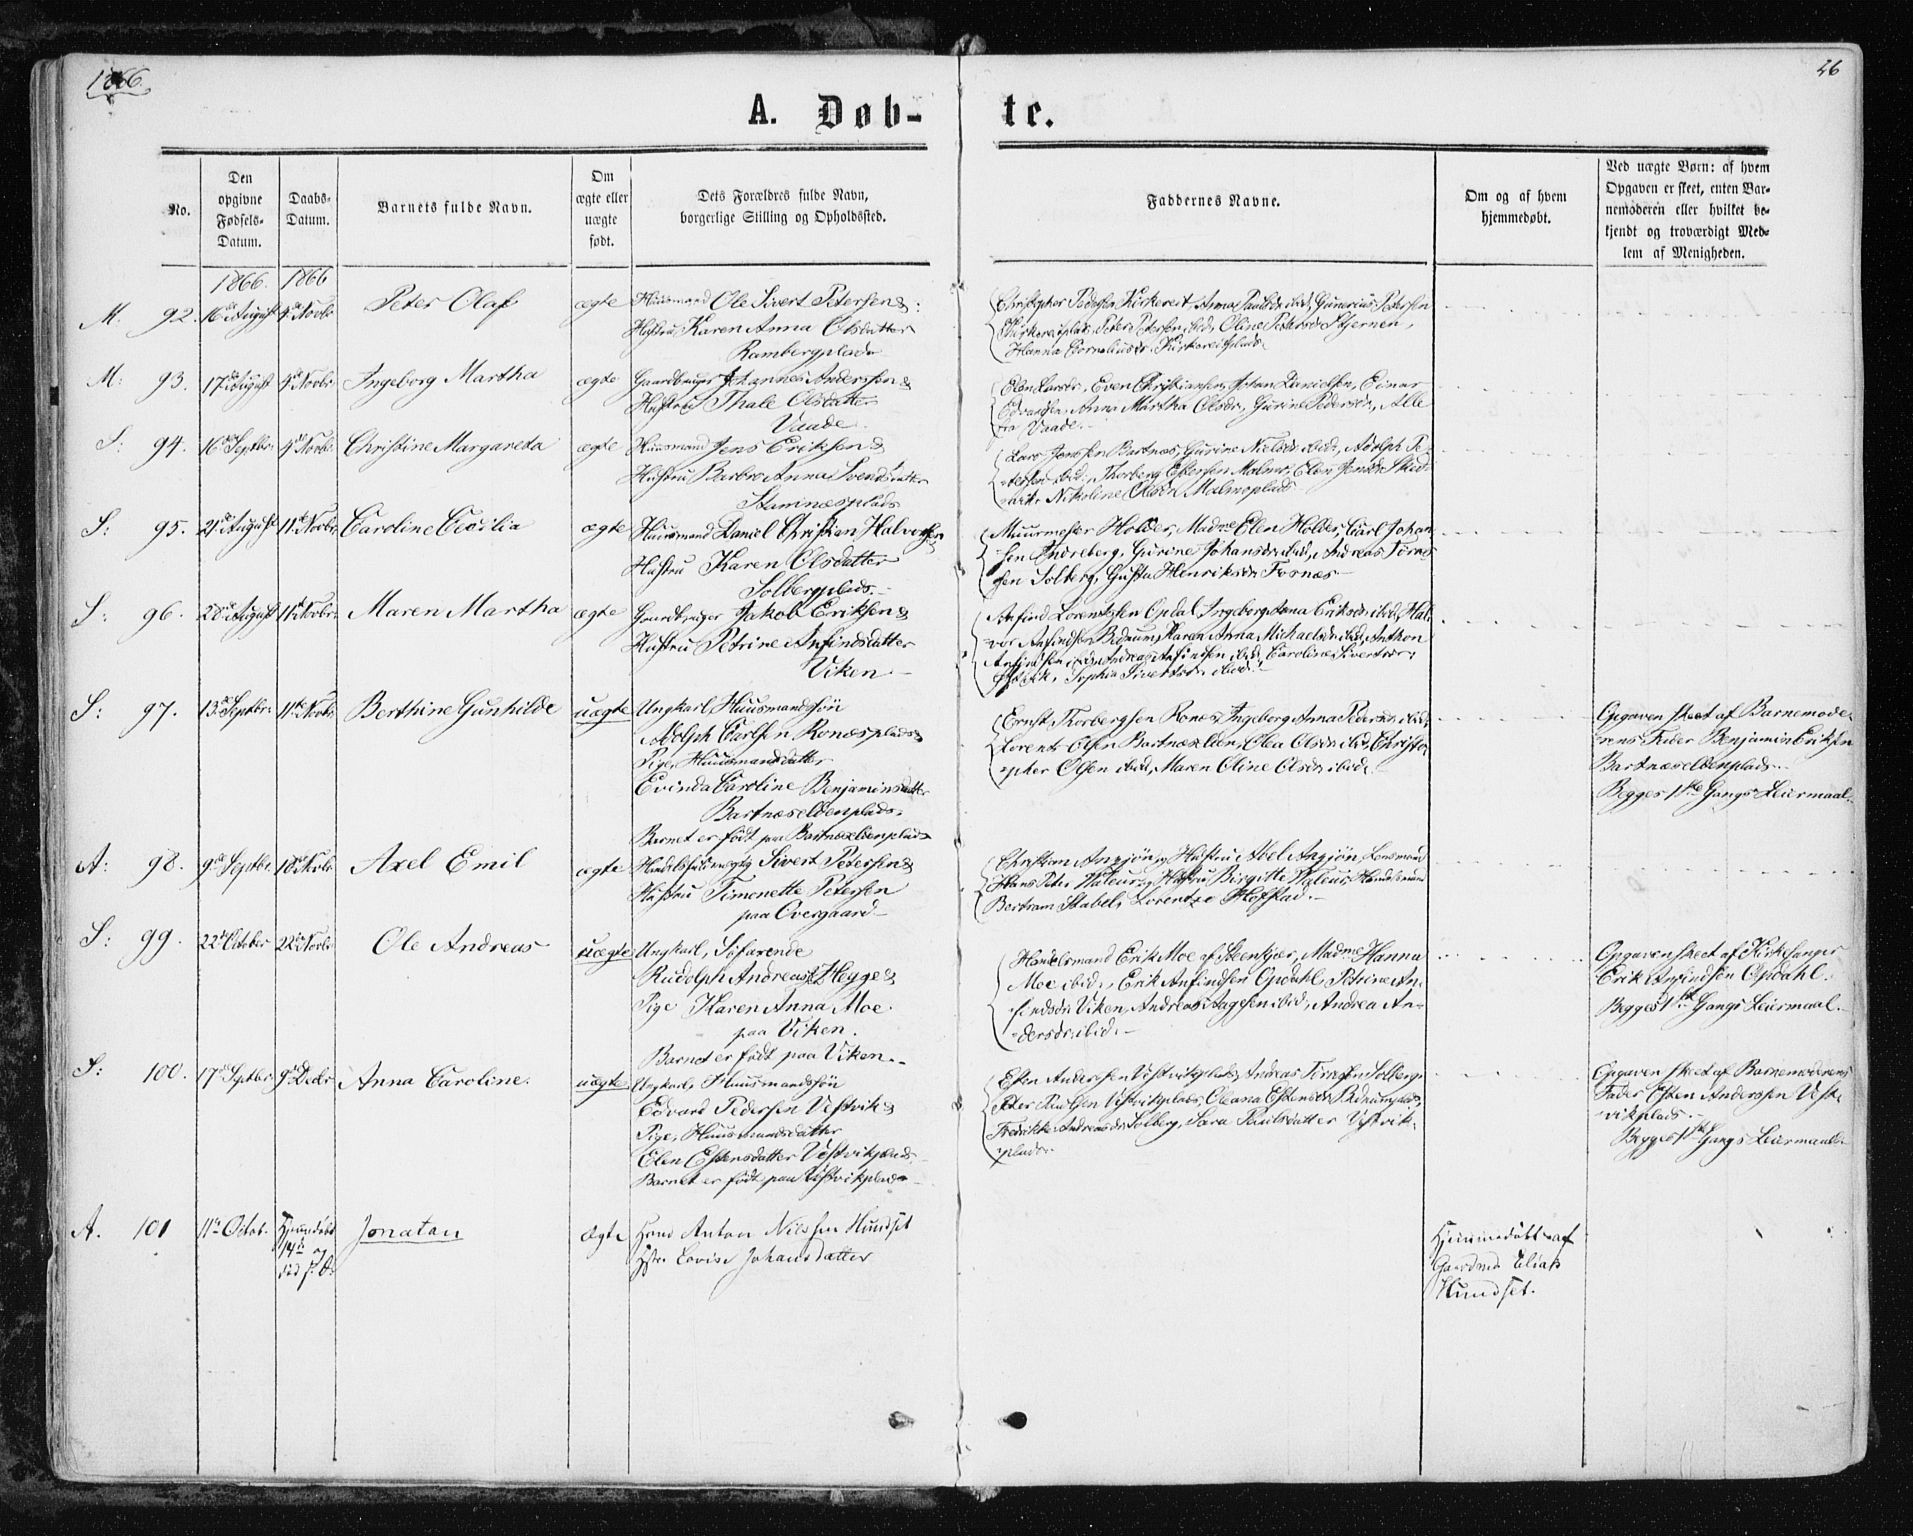 1866.
26
A. Døb-
te.
No.
Den
opgivne
Fødsels-
Datum.
Daabs-
Datum.
Barnets fulde Navn.
Om
ægte eller
uægte
født.
Dets Forældres fulde Navn,
borgerlige Stilling og Opholdssted.
Faddernes Navne.
Om og af hvem
hjemmedøbt.
Ved uægte Børn: af hvem
Opgaven er skeet, enten Bar-
nemoderen eller hvilket be-
kjendt og troværdigt Med-
lem af Menigheden.
1866. 1866
M. 92. 16de August 4de Novbr Peter Olaf ægte Huusmand Ole Sivert Petersen &
Hustru Karen Anna Olsdatter
Rambergplads
Christopher Pedersen Kirkereit, Anna Paulsdr ibid, Gunerius Petersen
Kirkereitplads, Peter Petersen ibid, Oline Petersdr Stjernen,
Hanna Corneliusdr Kirkereitplads.
M: 93. 17de August 4de Novbr Ingeborg Martha ægte Gaardbruger Johannes Anderssen &
Hustru Thale Olsdatter
Vaade.
Elen Larsdr, Even Christiansen, Johan Danielsen, Einar
Edvardsen, Anna Martha Olsdr, Gurine Pedersdr, Alle
fra Vaade.
S: 94. 16de Septbr. 4de Novbr. Christine Margareta ægte Huusmand Jens Eriksen &
Hustru Barbro Anna Svendsdatter
Stamnesplads
Lars Jensen Bartnæs, Gurine Nielsdr ibid, Adolph Pe-
tersen ibid, Thorberg Estensen Malmo, Elen Jensdr Skid-
, Nikoline Olsdr Malmoplads
S: 95. 21de August 11te Novbr. Caroline Cecilia ægte Huusmand Daniel Christian Halvorsen &
Hustru Karen Olsdatter
Solbergplads.
Muurmester Holder, Madme Elen Holder, Carl Johan-
sen Andreberg, Gurine Johansdr ibid, Andreas Tørres-
sen Solberg, Gusta Henriksdr Fosnæs.
S: 96. 28de August 11te Novbr. Maren Martha ægte Gaardbruger Jakob Eriksen &
Hustru Petrine Anfindsdatter
Viken.
Anfind Lorentssen Opdal, Ingeborg Anna Eriksdr ibid, Hal-
vor Anfindsen Bødnum, Karen Anna Michaelsdr ibid, Anthon
Anfindsen ibid, Andreas Anfindsen ibid, Caroline Sivertsdr
, Sophia Sivertsdr ibid.
S: 97. 13de Septbr. 11te Novbr. Berthine Gunhilde uægte Ungkarl, Huusmandssøn
Adolph Carlsen Ronæsplads &
Pige, Huusmandsdatter
Evinda Caroline Benjaminsdatter
Bartnæseldenplads.
Barnet er født paa Bartnæseldenplads
Ernst Thorbergsen Ronæs, Ingeborg Anna Pedersdr ibid,
Lorents Olsen Bartnæselden, Olea Olsdr ibid, Christo-
pher Olsen ibid, Maren Oline Olsdr ibid.
Opgaven skeet af Barnemode-
rens Fader Benjamin Eriksen
Bartnæseldenplads.
Begges 1ste Gangs Leiermaal.
A: 98. 9de Septbr. 18de Novbr. Axel Emil ægte Handelsfuldmægtig Sivert Petersen &
Hustru Timenette Petersen
paa Overgaard
Christian Angjon, Hustru Abel Angjon, Lensmand
Hans Peter Waleur, Hustru Birgitte Waleur, Handelsmand
Bertram Stabel, Lorentze Hofstad.
S: 99. 22de October 22de Novbr Ole Andreas uægte Ungkarl, Søfarende
Rudolph Andreas Hegge &
Pige Karen Anna Moe.
paa Viken.
Barnet er født paa Viken.
Handelsmand Erik Moe af Steenkjær, Madme Hanna
Moe ibid, Erik Anfindsen Opdahl, Petrine An-
findsdr Viken, Andreas Aagesen ibid, Andrea An-
dersdr ibid.
Opgaven skeet af Kirkesanger
Erik Anfindsen Opdahl.
Begges 1ste Gangs Leiermaal.
S: 100. 17de Septbr. 9de Decbr Anna Caroline. uægte Ungkarl, Huusmandssøn
Edvard Pedersen Vestvik &
Pige, Huusmandsdatter
Elen Estensdatter Vestvikplads.
Barnet er født paa Vestvikplads
Esten Andersen Vestvikplads, Andreas Tørressen Solberg,
Peter Paulsen Vestvikplads, Oleana Estensdr Bødnumplads,
Fredrikke Andreasdr Solberg, Sara Paulsdatter Vestvik-
plads.
Opgaven skeet af Barnemoderens
Fader Esten Anderssen Vest-
vikplads.
Begges 1ste Gangs Leiermaal.
A. 101 11te Octob. Hjemmedøbt
14de
død s. D. Jonatan Ægte Hmd Anton Nilssen Hundset
Hstr Lovise Johansdatter
Hjemmedøbt af
Gaardmd Elias
Hundset.